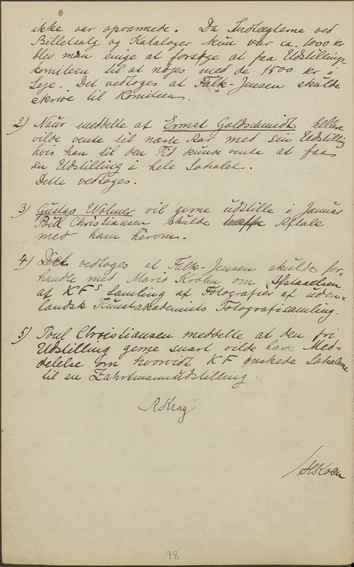 ikke var opvarmede. Da Indtægterne ved
Billetsalg og Kataloger kun var ca. 1000 kr
blev man enige af forsøge at faa Udstillings-
komiteen til at nøjes med de 1500 kr i
Leje. Det vedtoges at Falk-Jensen skulde
skrive til Komiteen.
2) Naur meddelte at Ernst Goldschmidt hellere
vilde vente til næste Aar med sin Udstilling
hvis han til den Tid kunde vente at faa
en Udstilling i hele Lokalet.
Dette vedtoges.
3) Gustav vil gerne udstille i Januar
Poul Christiansen skulde Aftale
med ham herom.
4) Det vedtoges at Falk-Jensen skulde for-
handle med Mario Krohn om Afstaaelsen
af KF's Samling af Fotografier af uden-
landsk Kunst Akademiets Fotografisamling.
5) Poul Christiansen meddelte at den fri
Udstilling gerne snart vilde have Med-
delelse om hvorvidt KF ønskede Lokalerne
til en Zahrtmannudstilling
98